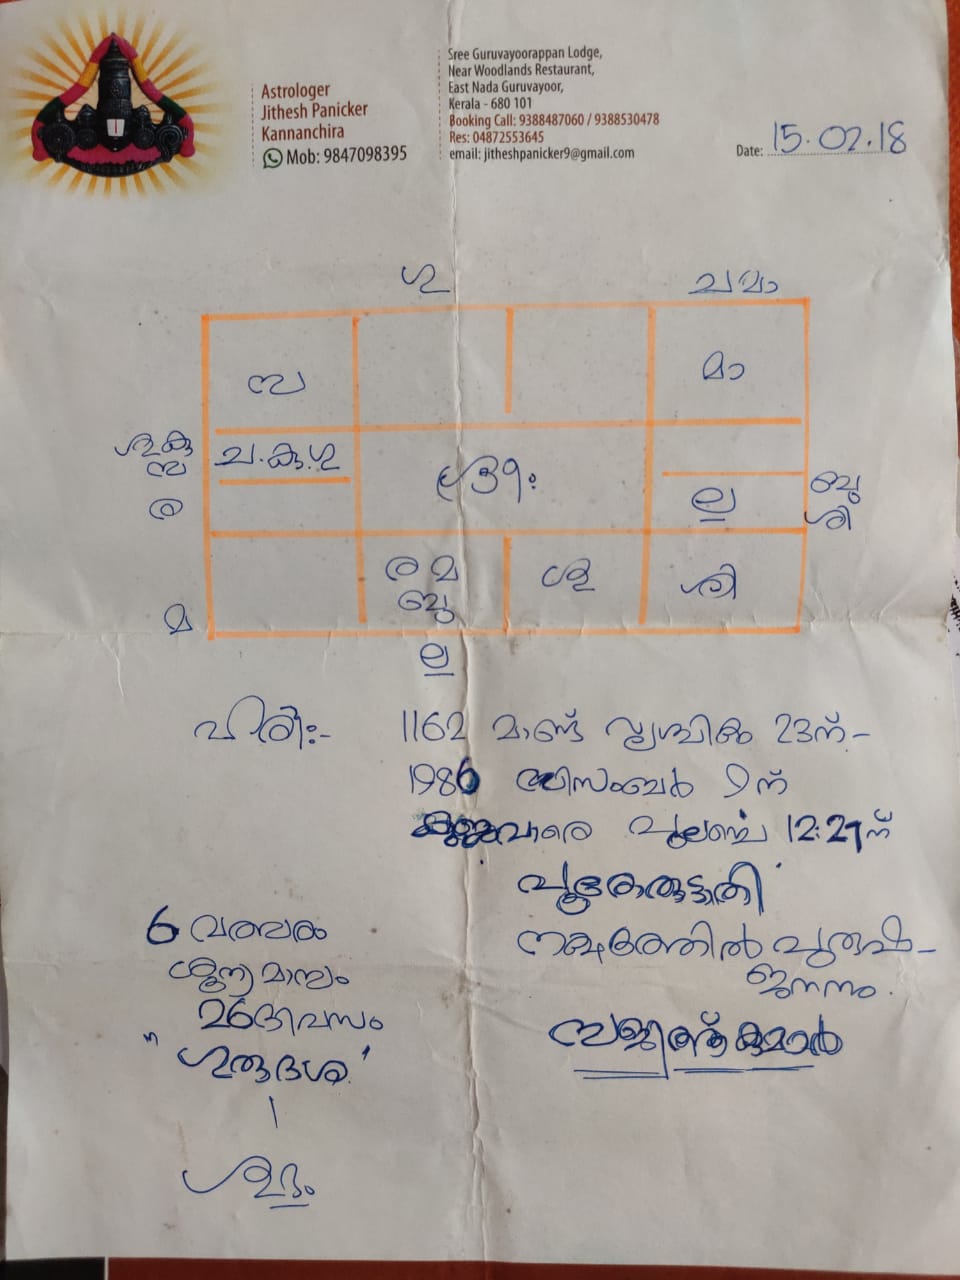 Astrologer
Jithesh Panicker
Kannanchira
Mob: 9847098395
Sree Guruvayoorappan Lodge,
Near Woodlands Restaurant,
East Nada Guruvayoor,
Kerala - 680 101
Booking Call: 9388487060 / 9388530478
Res: 04872553645
email: jitheshpanicker9@gmail.com
Date: 15.02.18
മാ
ര
ല
ശി
ബു
ശി
ര മ
ബു
മ
ല
1162 മാണ്ട് വൃശ്ചികം 23ന് -
1986 ഡിസംബർ 9ന്
പുലർച്ചെ 12:27ന്
പൂരുരുട്ടാതി
നക്ഷത്രത്തിൽ പുരുഷ -
ജനനം.
6 വത്സരം
ശൂന്യ മാസ്യം
26 ദിവസം
ഗുരുദശ
സജിത്ത് കുമാർ